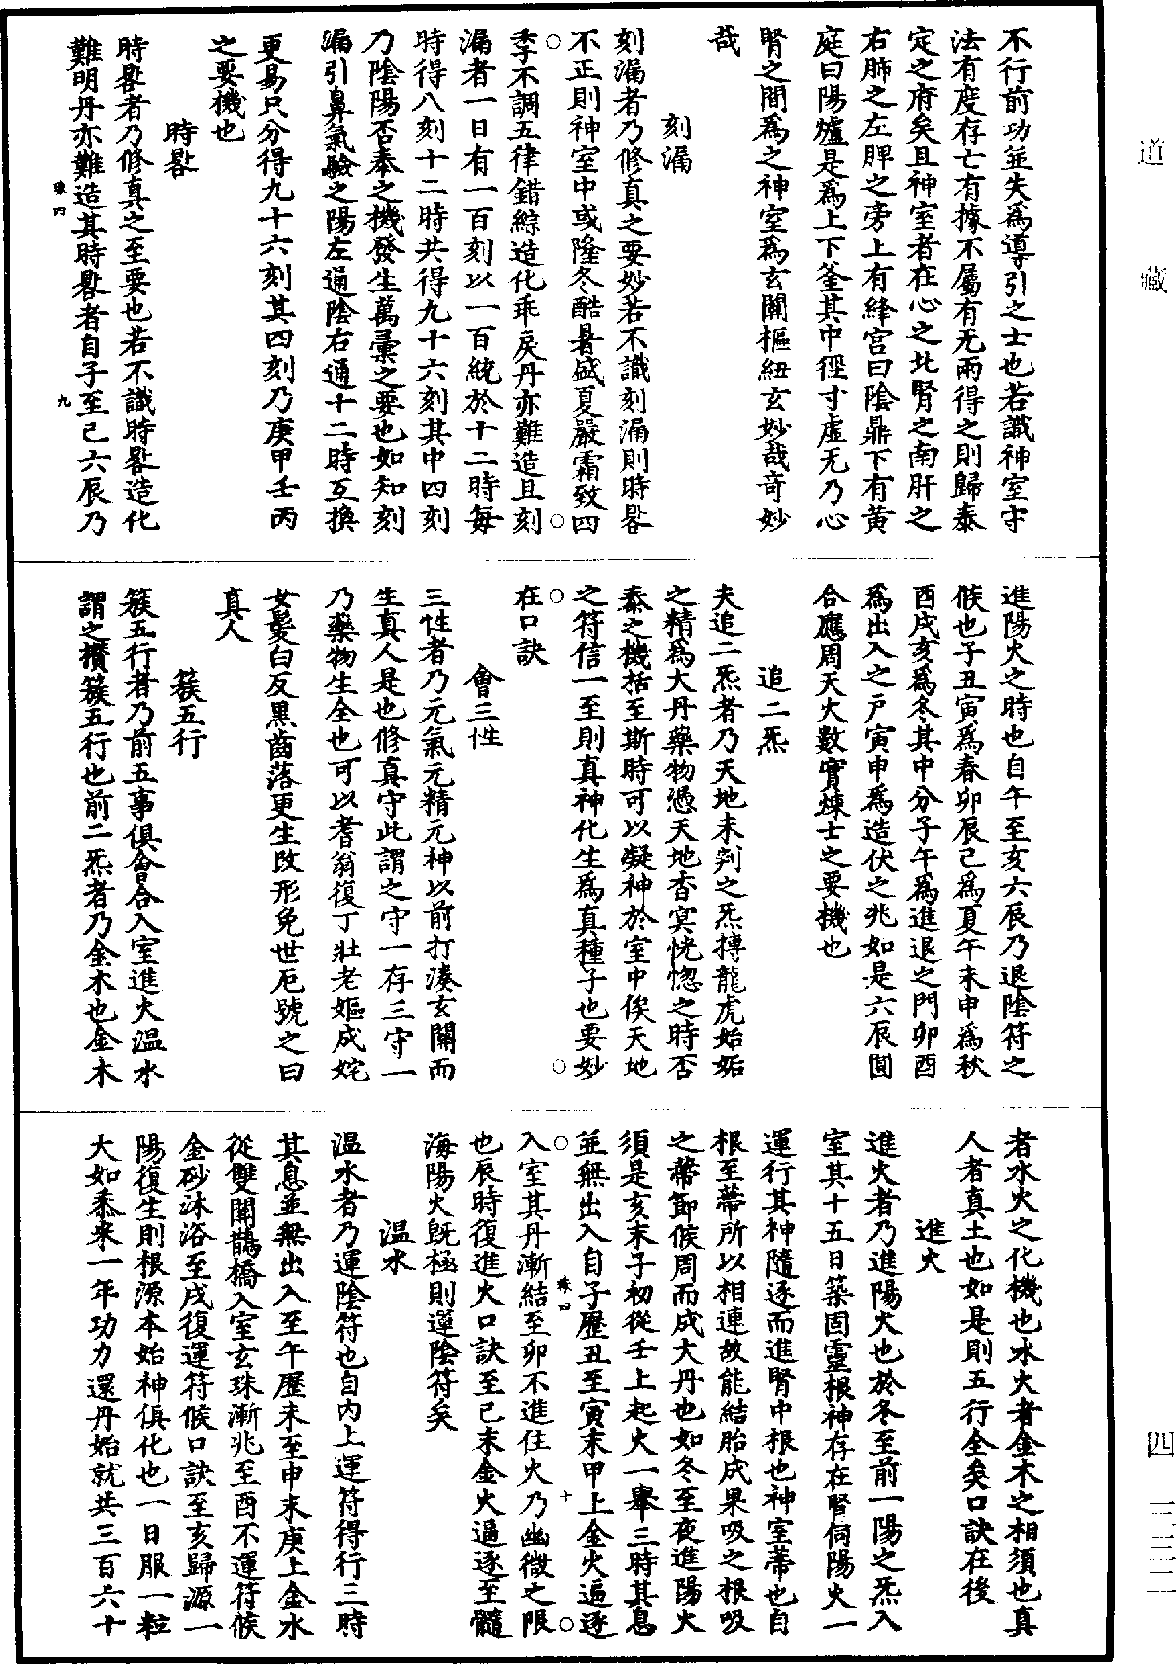 不行前功並失為導引之士也若識神室守
法有度存亡有據不屬有无兩得之則歸泰
定之府矣且神室者在心之北腎之南肝之
右肺之左脾之旁上有絳宮曰陰鼎下有黃
庭曰陽爐是為上下釜其中徑寸虛无乃心
腎之間為之神室為玄關樞紐玄妙哉奇妙
哉
刻漏
刻漏者乃修真之要妙若不識刻漏則時晷
不正則神室中或隆冬酷暑盛夏嚴霜致四
季不調五律錯綜造化乖戾丹亦難造且刻
漏者一日有一百刻以一百統於十二時每
時得八刻十二時共得九十六刻其中四刻
乃陰陽否泰之機發生萬彙之要也如知刻
漏引鼻氣驗之陽左通陰右通十二時互換
更易只分得九十六刻其四刻乃庚甲壬丙
之要機也
時晷
時晷者乃修真之至要也若不識時晷造化
難明丹亦難造其時晷者自子至巳六辰乃
九
進陽火之時也自午至亥六辰乃退陰符之
候也子丑寅為春卯辰巳為夏午未申為秋
酉戌亥為冬其中分子午為進退之門卯酉
為出入之戶寅申為造伏之兆如是六辰圓
合應周天火數實煉士之要機也
追二炁
夫追二炁者乃天地未判之炁搏龍虎始姤
之精為大丹藥物憑天地杳冥恍惚之時否
泰之機括至斯時可以凝神於室中俟天地
之符信一至則真神化生為真種子也要妙
在口訣
會三性
三性者乃元氣元精元神以前打湊玄關而
生真人是也修真守此謂之守一存三守一
乃藥物生全也可以耆翁復丁壯老嫗成姹
女髮白反黑齒落更生改形免世厄號之曰
真人
簇五行
簇五行者乃前五事俱會合入室進火溫水
謂之攢簇五行也前二炁者乃金木也金木
者水火之化機也水火者金木之相須也真
人者真土也如是則五行全矣口訣在後
進火
進火者乃進陽火也於冬至前一陽之炁入
室其十五日築固靈根神存在腎伺陽火一
運行其神隨逐而進腎中根也神室蒂也自
根至蒂所以相連故能結胎成果吸之根吸
之蒂節候周而成大丹也如冬至夜進陽火
須是亥末子初從壬上起火一舉三時其息
並無出入自子歷丑至寅末甲上金火逼逐
入室其丹漸結至卯不進住火乃幽微之限
十
也辰時復進火口訣至巳末金火逼逐至髓
海陽火既極則運陰符矣
溫水
溫水者乃運陰符也自內上運符得行三時
其息並無出入至午歷未至申末庚上金水
從雙關鵲橋入室玄珠漸兆至酉不運符候
金砂沐浴至戌復運符候口訣至亥歸源一
陽復生則根源本始神俱化也一日服一粒
大如黍米一年功力還丹始就共三百六十
道藏
四 一三二